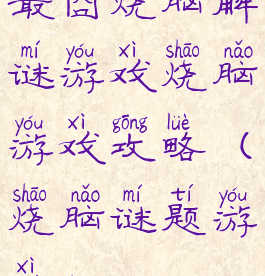 最囧烧脑解
mí yóu xì shāo nǎo
谜游戏烧脑
yóu xì gōng lüè
游戏攻略（
shāo nǎo mí tí yóu
烧脑谜题游
xì